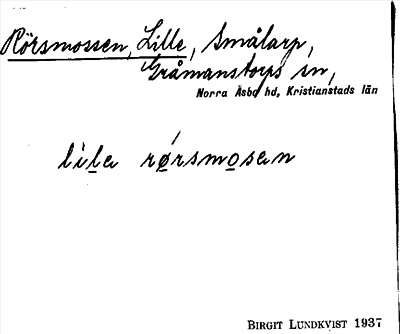 Rörsmossen, Lille, Smålarp,
Gråmanstorps sn,
Norra Åsbo hd, Kristianstads län
lila rørsmosan
BIRGIT LUNDKVIST 1937